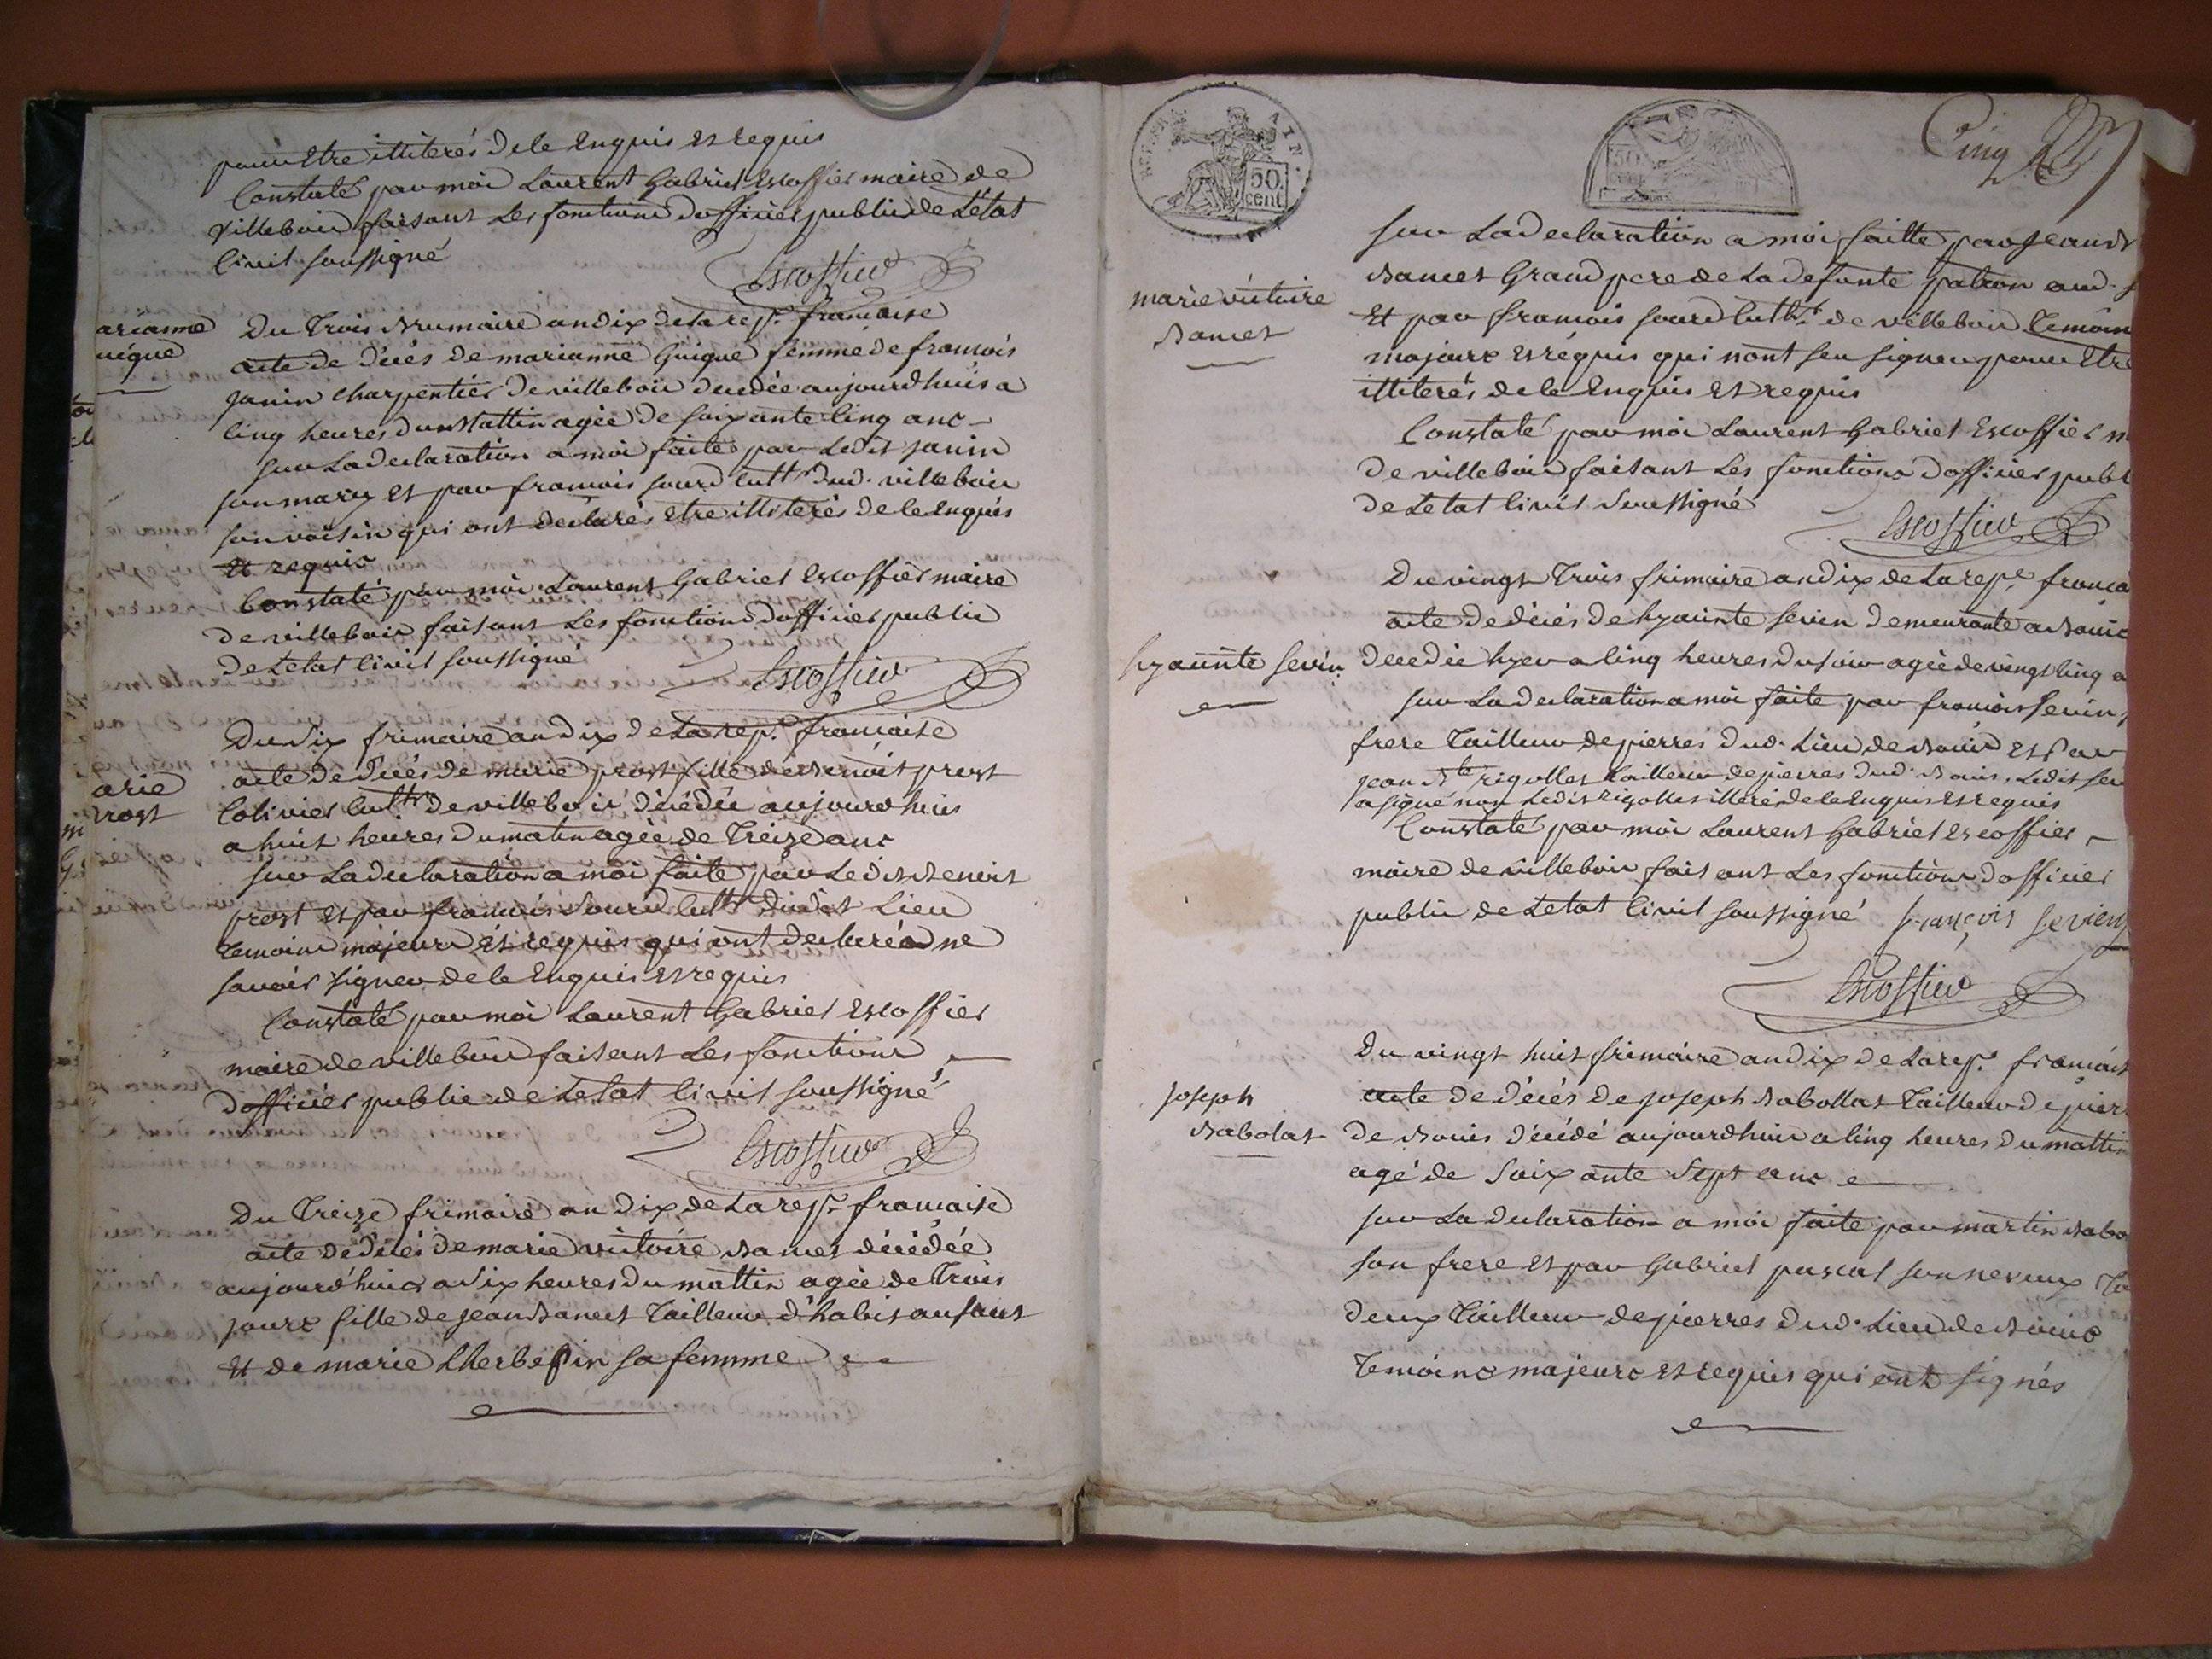 pour Etre illiterés de ce Enquis et requis
Constaté par moi Laurent Gabriel Escoffier maire de
villebois faisant Les fonctions dofficier public de L'état
Civil soussigné
Escoffier
arianne
uigue
Du Trois Brumaire an dix de La rep.e francaise
acte de décés de marianne Guigue femme de francois
janin charpentier de villebois decedée aujourdhuis a
cinq heures du Mattin agée de soixante cinq ans
sur La declaration a moi faite par Ledit janin
son mary et par francois sourd cultr dud. villebois
son voisin qui ont declarés etre illiterés de ce enquis
et requis
Constaté par moi Laurent Gabriel Escoffier maire
de villebois faisant Les fonctions dofficier public
de Letat Civil soussigné
Escoffier
arie
rost
Du six frimaire an dix de La rep.e francaise
acte de décés de marie prost fille de Benoit prost
Colivier cultr de villebois décédée aujourdhuis
a huit heures du matin agée de Treize ans
sur La declaration a moi faite par Ledit Benoit
prost et par francois sourd cultr dudit Lieu
Temoins majeurs et requis qui ont declarés ne
savoir signer de ce Enquis et requis
Constaté par moi Laurent Gabriel Escoffier
maire de villebois faisant Les fonctions
dofficier public de Letat Civil soussigné
Escoffier
Du Treize frimaire an dix de La rep.e francaise
acte de décés de marie victoire Bances décédée
aujourd'huis a six heures du mattin agée de Trois
jours fille de jean Bances Tailleur d'habis au saut
et de marie Lherbepin sa femme
REP. FRA
50
cent
50
cent
Cinq
marie victoire
Bances
sur La declaration a moi faitte par jean B
Bances Grand pere de La defunte patron aud. s
Et par francois sourd cultr de villebois Temoin
majours et réquis qui nont seu signer pour Etre
illiterés de ce Enquis et requis
Constaté par moi Laurent Gabriel Escoffier m
de villebois faisant Les fonctions dofficier publ
de Letat Civil soussigné
Escoffier
hyacinte sevin
Du vingt Trois frimaire an dix de La rep.e franca
acte de décés de hyacinte sevin demeurante a Bouis
decedée hyer a cinq heures du soir agée de vingt cinq a
sur La declaration a moi faite par francois sevin
frere Tailleur de pierres dud. Lieu de Bouis et Par
jean Bte rigollet Tailleur de pierres dud. Bouis, Ledit sev
a signé non Ledit rigollet illiteré de ce Enquis et requis
Constaté par moi Laurent Gabriel Escoffier
maire de villebois faisant Les fonctions dofficier
public de Letat Civil soussigné
françois sevin
Escoffier
joseph
Babolat
Du vingt huit frimaire an dix de La rep.e francais
acte de décés de joseph Babollat Tailleur de pier
de Bouis décédé aujourdhuis a cinq heures du mattin
agé de soixante sept ans
sur La declaration a moi faite par martin Babo
son frere et par Gabriel pascal son neveux To
deux Tailleur de pierres dud. Lieu de Bouis
Temoins majeurs et requis qui ont signés